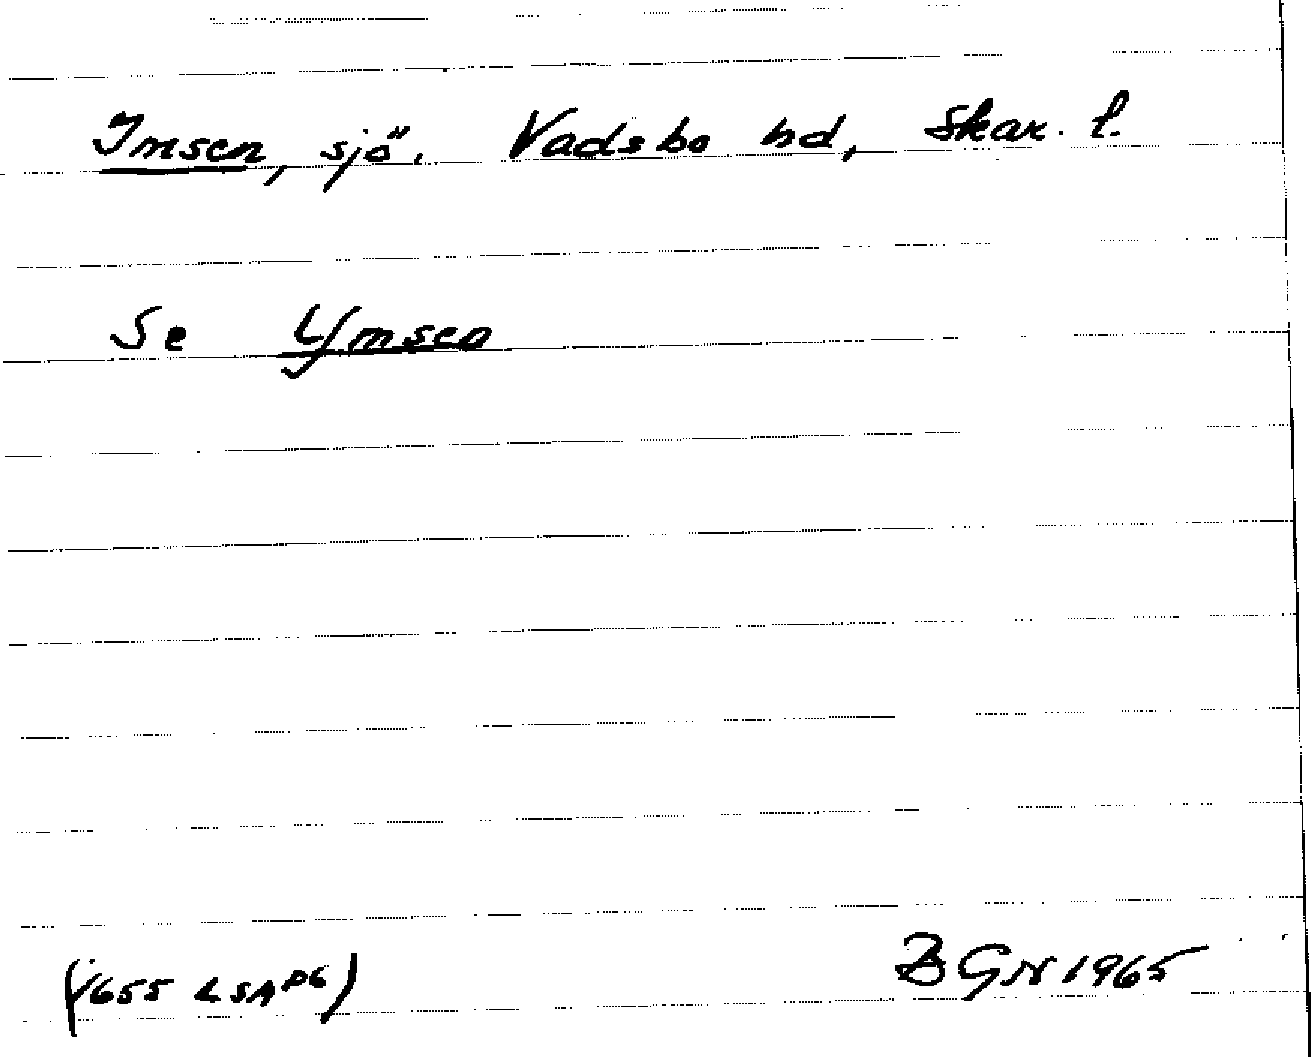 Imsen, sjö. Vadsbo hd, Skar. l.
Se Ymsen
(1655 LSA P6)
BGN 1965